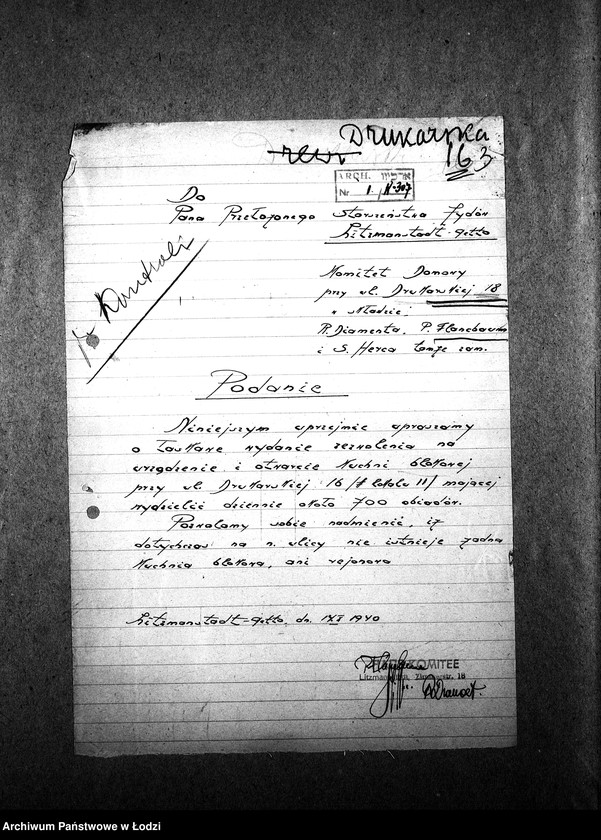 Drukarska
16 3
ARCH.
Nr 1. N-307
Do
Pana Przełożonego Starszeństwa Żydów
Litzmannstadt-Getto
Komitet Domowy
przy ul. Drukarskiej 18
w składzie:
R. Diamenta, P. Flancbauma
i S. Herca tamże zam.
K. Kontroli
Podanie
Niniejszym uprzejmie upraszamy
o łaskawe wydanie zezwolenia na
urządzenie i otwarcie Kuchni blokowej
przy ul. Drukarskiej 16 /f lokalu 11/ mającej
wydzielić dziennie około 700 obiadów.
Pozwalamy sobie nadmienić, iż
dotychczas na n. ulicy nie istnieje żadna
Kuchnia blokowa, ani rejonowa
Litzmannstadt-Getto, dn. 1XI 1940
KOMITEE
18
Archiwum Państwowe w Łodzi